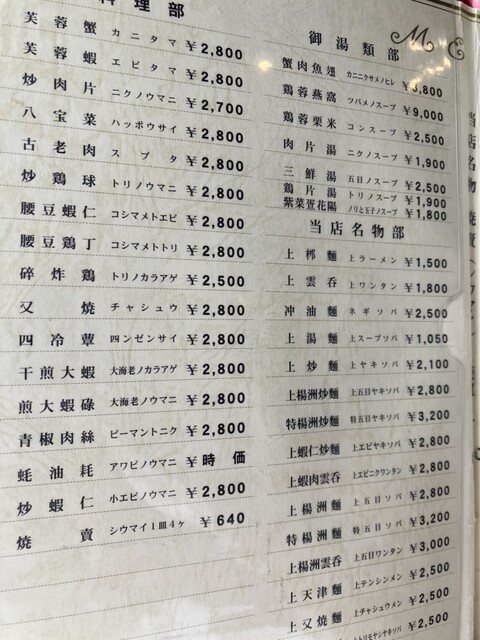 料理部
芙蓉蟹 カニタマ ￥2,800
芙蓉蝦 エビタマ ￥2,800
炒肉片 ニクノウマニ ￥2,700
八宝菜 ハッポウサイ ￥2,800
古老肉 スブタ ￥2,800
炒鶏球 トリノウマニ ￥2,800
腰豆蝦仁 コシマメトエビ ￥2,800
腰豆鶏丁 コシマメトトリ ￥2,800
碎炸鶏 トリノカラアゲ ￥2,500
叉焼 チャシュウ ￥2,800
四冷蕈 四ンゼンサイ ￥2,800
干煎大蝦 大海老ノカラアゲ ￥2,800
煎大蝦碌 大海老ノウマニ ￥2,800
青椒肉絲 ピーマントニク ￥2,800
蚝油耗 アワビノウマニ ￥時価
炒蝦仁 小エビノウマニ ￥2,800
焼賣 シウマイ1皿4ヶ ￥640
御湯類部
蟹肉魚翅 カニニクサメノヒレ ￥3,800
鶏蓉燕窩 ツバメノスープ ￥9,000
鶏蓉栗米 コンスープ ￥2,500
肉片湯 ニクノスープ ￥1,900
三鮮湯 五目ノスープ ￥2,500
鶏片湯 トリノスープ ￥1,900
紫菜萓花陽 ノリと玉子ノスープ ￥1,800
当店名物部
上梛麺 上ラーメン ￥1,500
上雲呑 上ワンタン ￥1,800
冲油麺 ネギソバ ￥2,500
上湯麺 上スープソバ ￥1,050
上炒麺 上ヤキソバ ￥2,100
上楊洲炒麺 上五目ヤキソバ ￥2,800
特楊洲炒麺 特五目ヤキソバ ￥3,200
上蝦仁炒麺 上エビヤキソバ ￥2,800
上蝦肉雲呑 上エビニクワンタン ￥2,800
上楊洲麺 上五目ソバ ￥2,800
特楊洲麺 特五目ソバ ￥3,200
上楊洲雲呑 上五目ワンタン ￥3,000
上天津麺 上テンシンメン ￥2,500
上叉焼麺 上チャシュウメン ￥2,500
上トリモヤシヤキソバ ￥2,500
当店名物